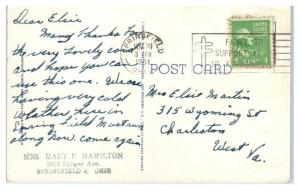 Dear Elsie
Many Thanks for
the very lovely card
and hope you can
use this one. We are
having very cold
whather, here in
Springfield
along now. come again
MRS. MARY P. HAMILTON
SPRINGFIELD OHIO
SPRINGFIELD
1951
FIGHT TB
1 CENT
POST CARD
Mrs Elsie Martin
315 Wyoming St
Charleston
West Va.